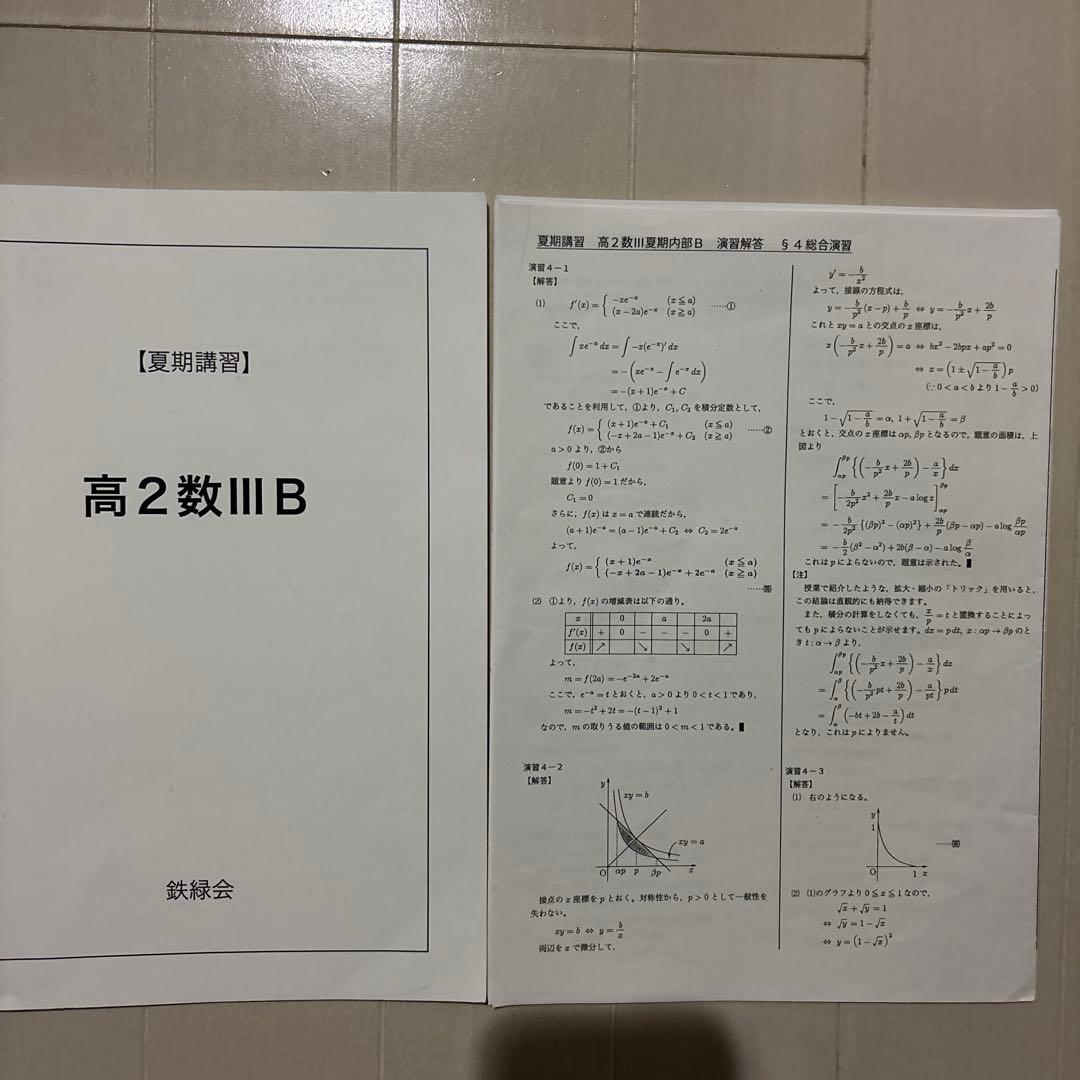 【夏期講習】
高2数ⅢB
鉄緑会
夏期講習 高2数Ⅲ夏期内部B 演習解答 §4総合演習
演習4-1
【解答】
(1) f'(x) = { -xe^{-x} (x≦a)
(x-2a)e^{-x} (x≧a) ……①
ここで,
∫xe^{-x}dx = ∫-x(e^{-x})'dx
= -(xe^{-x} - ∫e^{-x}dx)
= -(x+1)e^{-x} + C
であることを利用して, ①より, C₁, C₂ を積分定数として,
f(x) = { (x+1)e^{-x} + C₁ (x≦a)
(-x+2a-1)e^{-x} + C₂ (x≧a) ……②
a>0 より, ②から
f(0) = 1 + C₁
題意より f(0)=1 だから,
C₁ = 0
さらに, f(x) は x=a で連続だから,
(a+1)e^{-a} = (a-1)e^{-a} + C₂ ⇔ C₂ = 2e^{-a}
よって,
f(x) = { (x+1)e^{-x} (x≦a)
(-x+2a-1)e^{-x} + 2e^{-a} (x≧a)
……答
(2) ①より, f(x) の増減表は以下の通り。
x 0 a 2a
f'(x) + 0 - - - 0 +
f(x) ↗ ↘ ↘ ↗
よって,
m = f(2a) = -e^{-2a} + 2e^{-a}
ここで, e^{-a} = t とおくと, a>0 より 0<t<1 であり,
m = -t² + 2t = -(t-1)² + 1
なので, m の取りうる値の範囲は 0<m<1 である。∎
演習4-2
【解答】
y
xy=b
xy=a
O αp p βp x
接点の x 座標を p とおく。対称性から, p>0 として一般性を
失わない。
xy = b ⇔ y = b/x
両辺を x で微分して,
y' = -b/x²
よって, 接線の方程式は,
y = -b/p²(x-p) + b/p ⇔ y = -b/p² x + 2b/p
これと xy=a との交点の x 座標は,
x(-b/p² x + 2b/p) = a ⇔ bx² - 2bpx + ap² = 0
⇔ x = (1 ± √(1 - a/b))p
(∵ 0<a<b より 1 - a/b > 0)
ここで,
1 - √(1 - a/b) = α, 1 + √(1 - a/b) = β
とおくと, 交点の x 座標は αp, βp となるので, 題意の面積は, 上
図より
∫_{αp}^{βp} {(-b/p² x + 2b/p) - a/x} dx
= [-b/2p² x² + 2b/p x - a log x]_{αp}^{βp}
= -b/2p² {(βp)² - (αp)²} + 2b/p (βp - αp) - a log βp/αp
= -b/2 (β² - α²) + 2b(β - α) - a log β/α
これは p によらないので, 題意は示された。∎
【注】
授業で紹介したような, 拡大・縮小の「トリック」を用いると,
この結論は直観的にも納得できます。
また, 積分の計算をしなくても, x/p = t と置換することによっ
ても p によらないことが示せます。dx = p dt, x : αp → βp のと
き t : α → β より,
∫_{αp}^{βp} {(-b/p² x + 2b/p) - a/x} dx
= ∫_α^β {(-b/p² pt + 2b/p) - a/pt} p dt
= ∫_α^β (-bt + 2b - a/t) dt
となり, これは p によりません。
演習4-3
【解答】
(1) 右のようになる。
y
1
……答
O 1 x
(2) (1)のグラフより 0≦x≦1 なので,
√x + √y = 1
⇔ √y = 1 - √x
⇔ y = (1 - √x)²